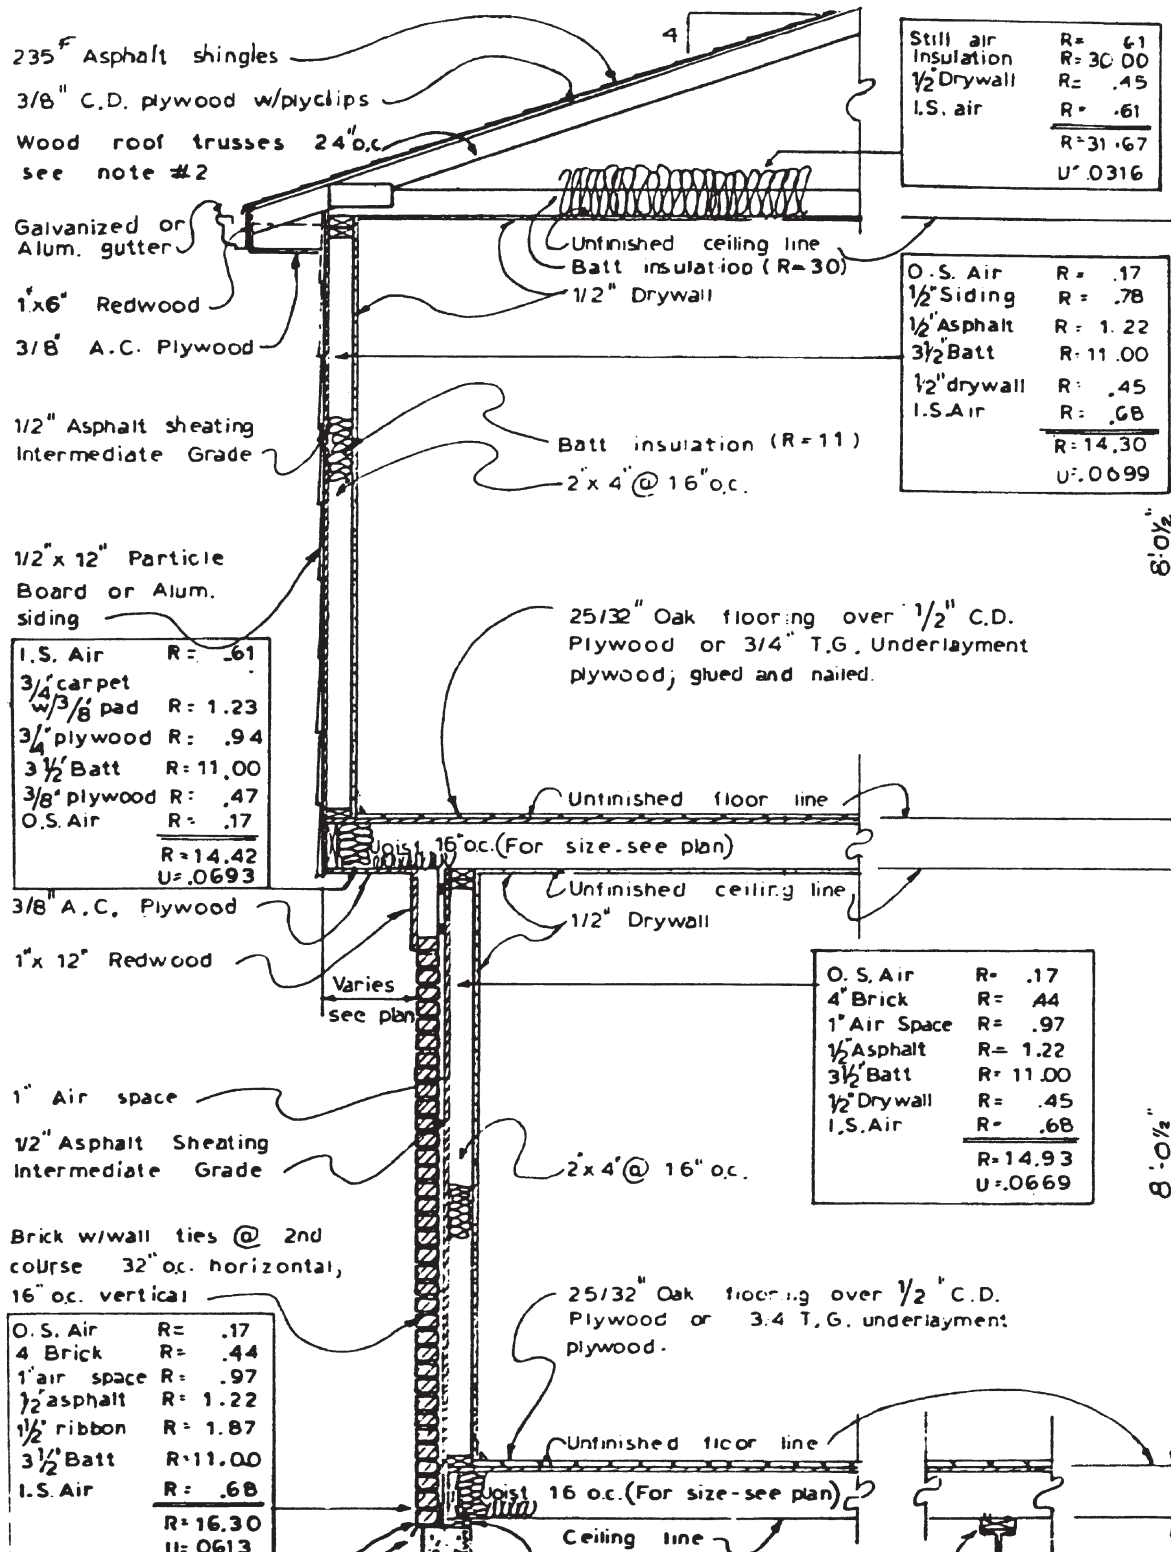 235# Asphalt shingles
3/8" C.D. plywood w/plyclips
Wood roof trusses 24"o.c.
see note #2
Galvanized or
Alum. gutter
1"x6" Redwood
3/8" A.C. Plywood
1/2" Asphalt sheating
Intermediate Grade
1/2"x 12" Particle
Board or Alum.
siding
4
Still air R= .61
Insulation R= 30.00
1/2" Drywall R= .45
I.S. air R= .61
R=31.67
U=.0316
Unfinished ceiling line
Batt insulation (R=30)
1/2" Drywall
O.S. Air R= .17
1/2" Siding R= .78
1/2" Asphalt R= 1.22
3 1/2" Batt R=11.00
1/2" drywall R= .45
I.S.Air R= .68
R=14.30
U=.0699
Batt insulation (R=11)
2"x 4"@ 16"o.c.
8'-0 1/2"
25/32" Oak flooring over 1/2" C.D.
Plywood or 3/4" T.G. Underlayment
plywood; glued and nailed.
I.S. Air R= .61
3/4" carpet
w/3/8" pad R= 1.23
3/4" plywood R= .94
3 1/2" Batt R=11.00
3/8" plywood R= .47
O.S. Air R= .17
R=14.42
U=.0693
Unfinished floor line
Joist 16"o.c.(For size-see plan)
Unfinished ceiling line
1/2" Drywall
3/8" A.C. Plywood
1"x 12" Redwood
Varies
see plan
O.S. Air R= .17
4" Brick R= .44
1" Air Space R= .97
1/2" Asphalt R= 1.22
3 1/2" Batt R= 11.00
1/2" Drywall R= .45
I.S.Air R= .68
R=14.93
U=.0669
1" Air space
1/2" Asphalt Sheating
Intermediate Grade
2"x 4"@ 16"o.c.
8'-0 1/2"
Brick w/wall ties @ 2nd
course 32"o.c. horizontal,
16"o.c. vertical
25/32" Oak flooring over 1/2" C.D.
Plywood or 3/4 T.G. underlayment
plywood.
O.S. Air R= .17
4 Brick R= .44
1"air space R= .97
1/2"asphalt R= 1.22
1 1/2" ribbon R= 1.87
3 1/2" Batt R=11.00
I.S. Air R= .68
R=16.30
U=.0613
Unfinished floor line
Joist 16 o.c.(For size-see plan)
Ceiling line